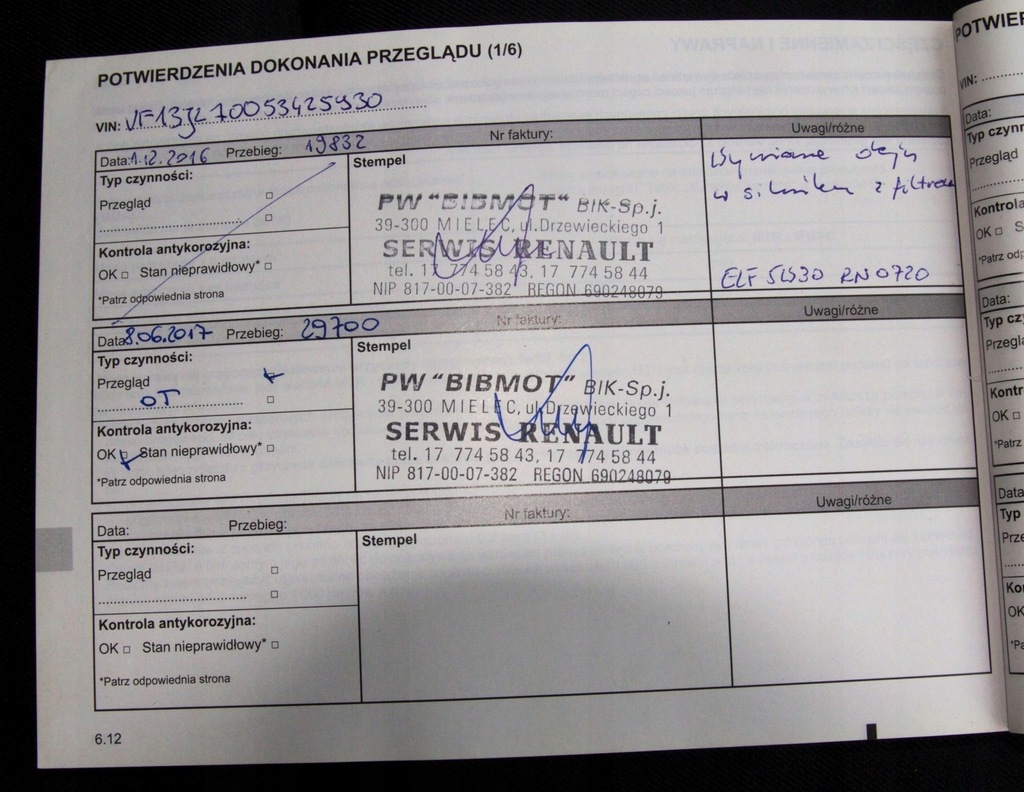 POTWIERDZENIA DOKONANIA PRZEGLĄDU (1/6)
VIN:
Data: 1.12.2016 Przebieg: 19832 Nr faktury: Uwagi/różne
Typ czynności: Stempel
Przegląd
Kontrola antykorozyjna:
OK Stan nieprawidłowy*
*Patrz odpowiednia strona
PW "BIBMOT" BIK-Sp.j.
39-300 MIELEC, ul.Drzewieckiego 1
SERWIS RENAULT
tel. 17 774 58 43, 17 774 58 44
NIP 817-00-07-382 REGON 690248079
Wymiana oleju
w silniku z filtrem
ELF 5W30 RN0720
Data: 8.06.2017 Przebieg: 29700 Nr faktury: Uwagi/różne
Typ czynności: Stempel
Przegląd
OT
Kontrola antykorozyjna:
OK Stan nieprawidłowy*
*Patrz odpowiednia strona
PW "BIBMOT" BIK-Sp.j.
39-300 MIELEC, ul.Drzewieckiego 1
SERWIS RENAULT
tel. 17 774 58 43, 17 774 58 44
NIP 817-00-07-382 REGON 690248079
Data: Przebieg: Nr faktury: Uwagi/różne
Typ czynności: Stempel
Przegląd
Kontrola antykorozyjna:
OK Stan nieprawidłowy*
*Patrz odpowiednia strona
6.12
VIN:
Data:
Przegląd
OK
Data:
OK
Data
Typ
OK